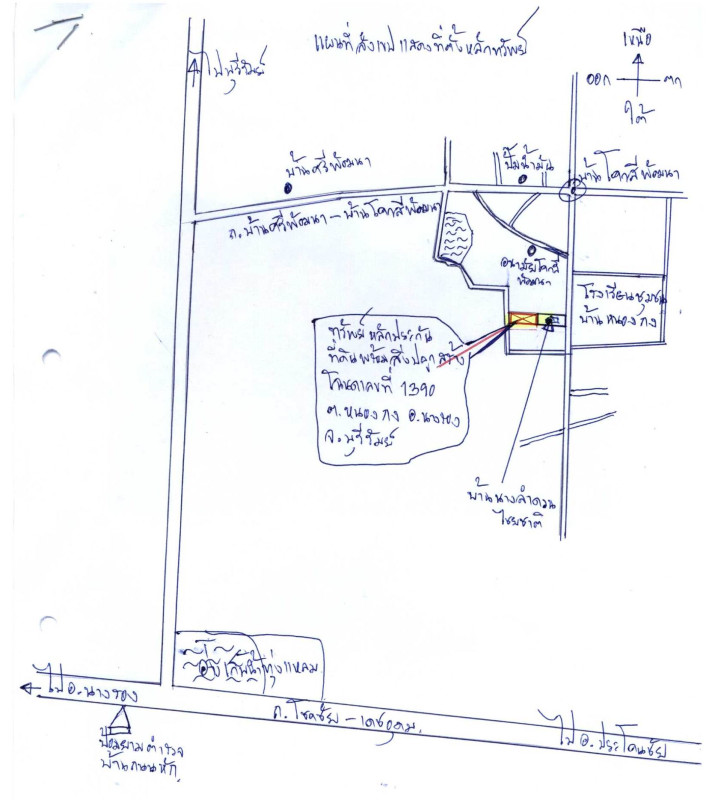 แผนที่สังเขปแสดงที่ตั้งหลักทรัพย์
เหนือ
ออก
ตก
ใต้
ไปบุรีรัมย์
บ้านศรีพัฒนา
ปั๊มน้ำมัน
บ้านโคกสีพัฒนา
ถ.บ้านศรีพัฒนา - บ้านโคกสีพัฒนา
อนามัยโคกสี
พัฒนา
โรงเรียนชุมชน
บ้านหนองกง
ทรัพย์หลักประกัน
ที่ดินพร้อมสิ่งปลูกสร้าง
โฉนดเลขที่ 1390
ต.หนองกง อ.นางรอง
จ.บุรีรัมย์
บ้านนางลำดวน
ไชยชาติ
อ่างเก็บน้ำทุ่งแหลม
ไป อ.นางรอง
ถ.โชคชัย - เดชอุดม.
ไป อ.ประโคนชัย
ป้อมยามตำรวจ
บ้านถนนหัก